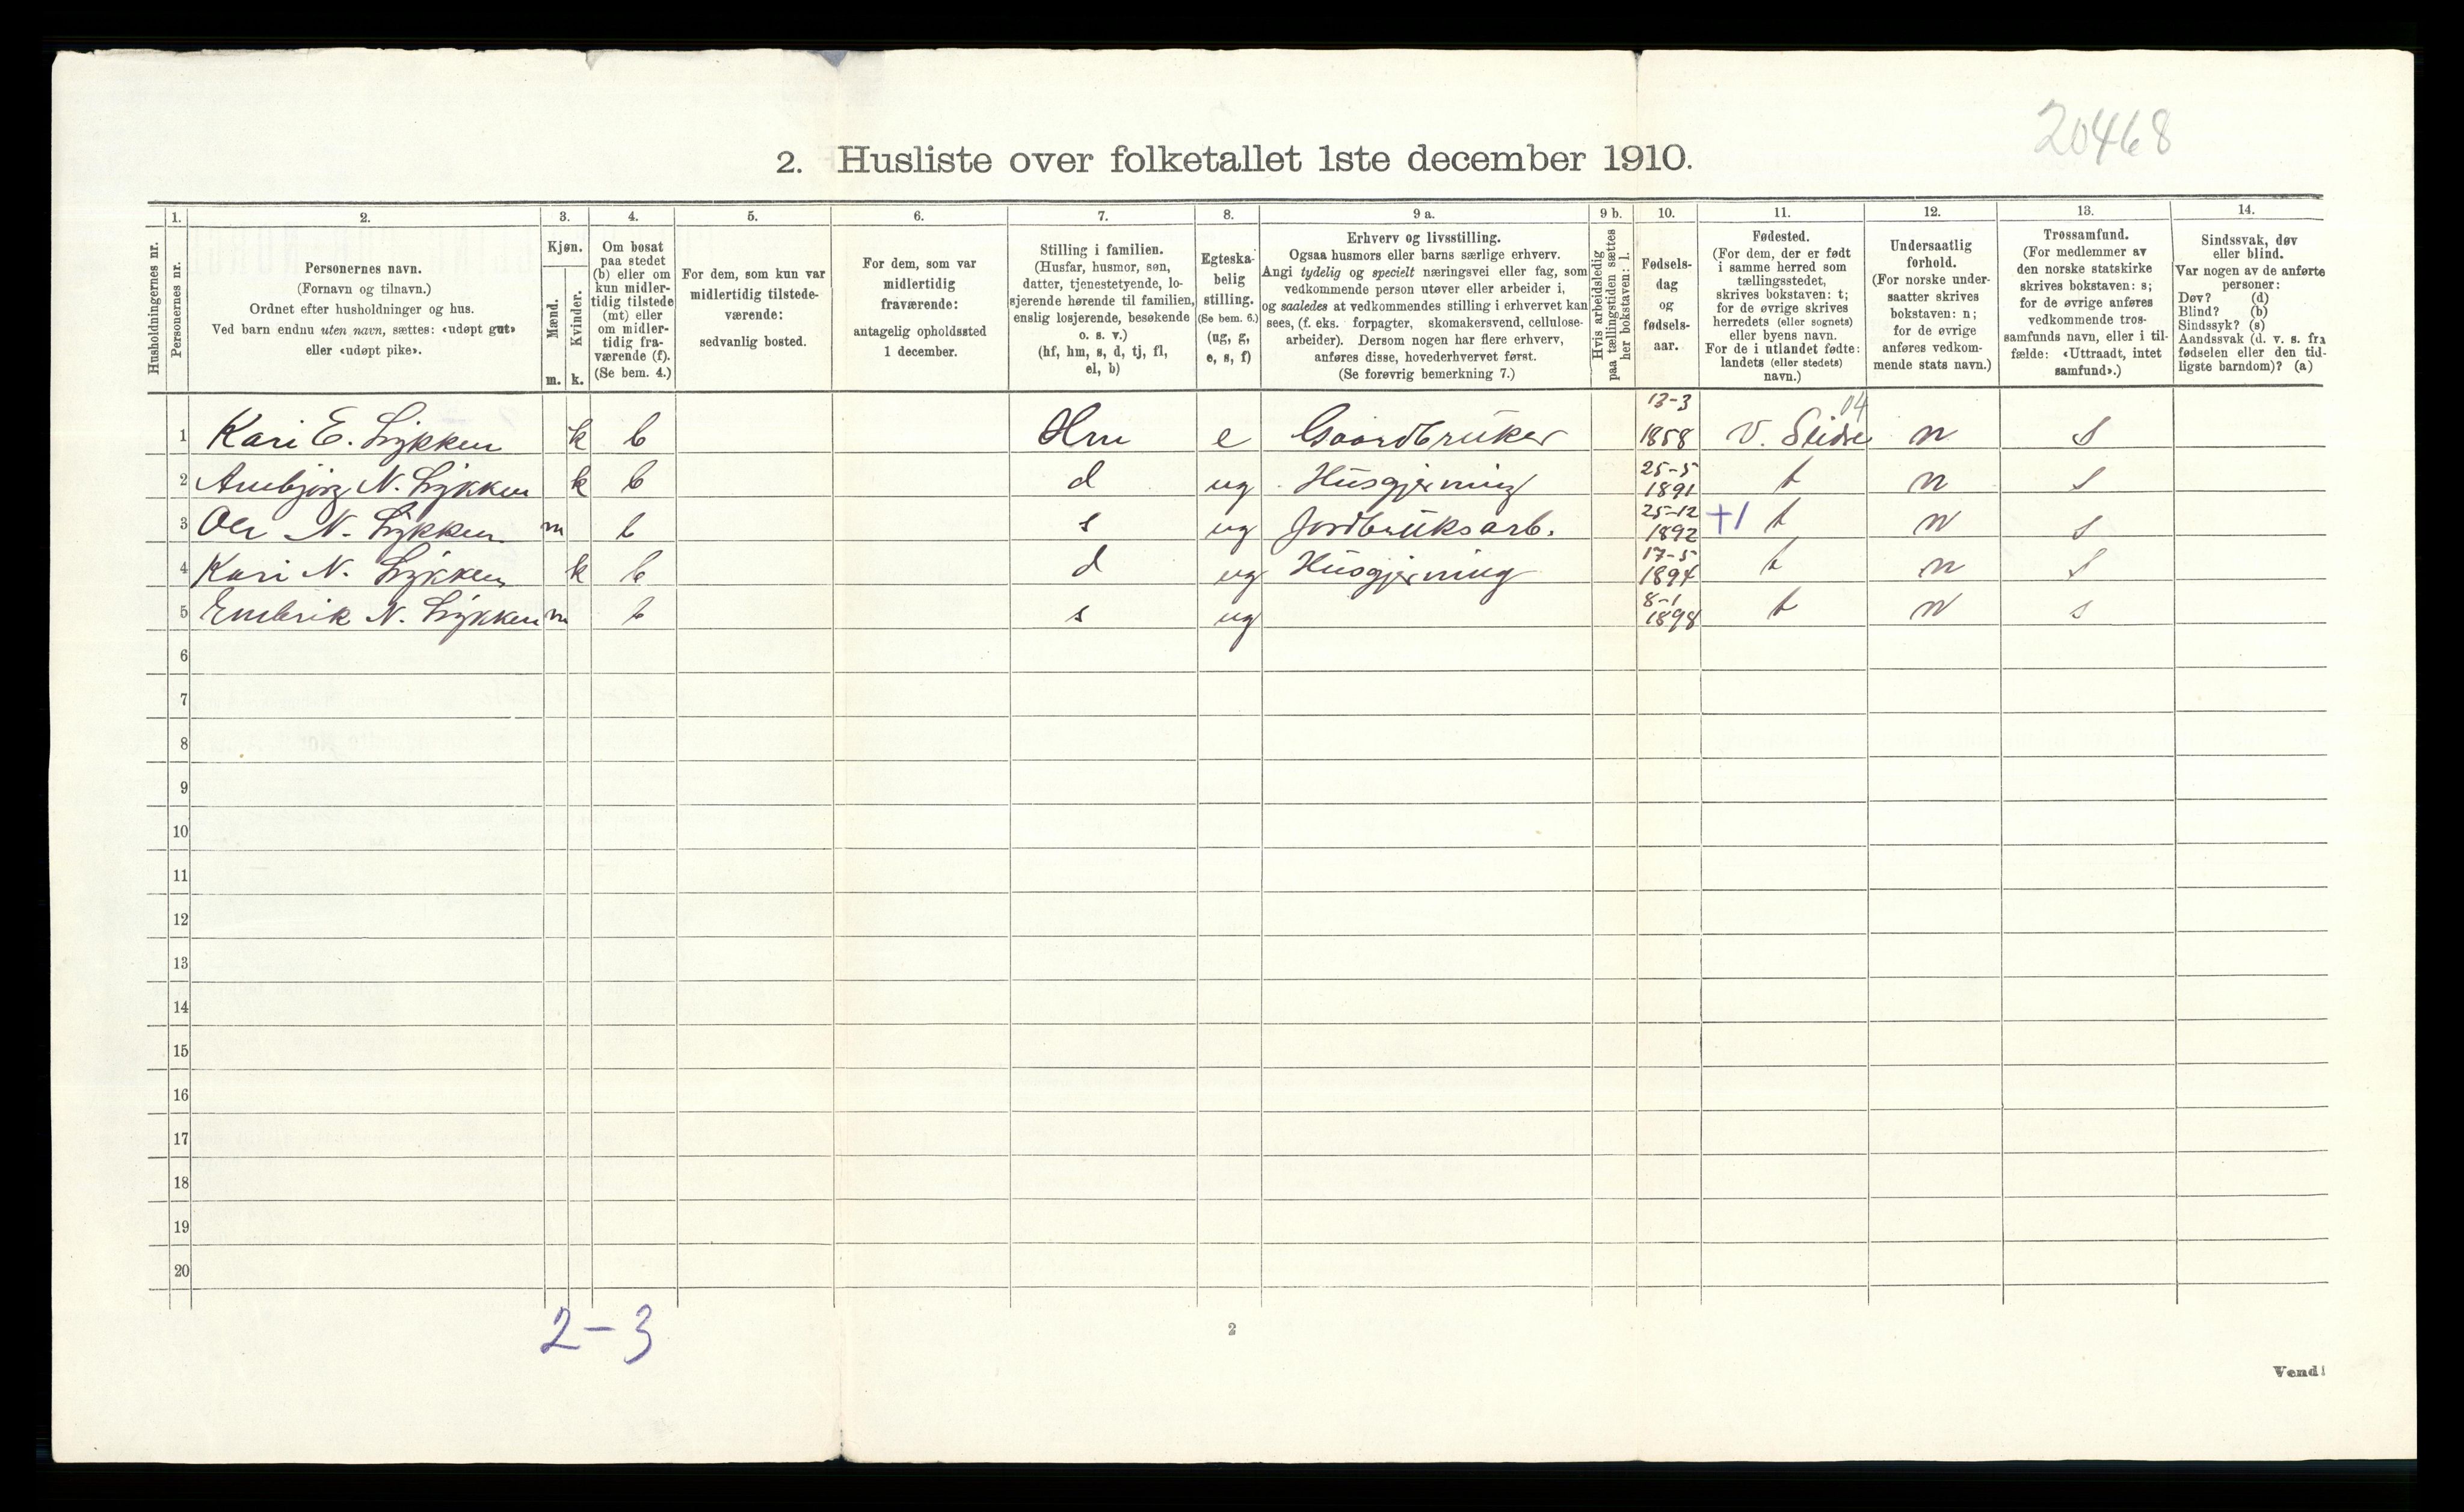 20468
2. Husliste over folketallet 1ste december 1910.
Husholdningernes nr.
1. Personernes nr.
2. Personernes navn.
(Fornavn og tilnavn.)
Ordnet efter husholdninger og hus.
Ved barn endnu uten navn, sættes: «udøpt gut»
eller «udøpt pike».
3. Kjøn.
Mænd. m.
Kvinder. k.
4. Om bosat
paa stedet
(b) eller om
kun midler-
tidig tilstede
(mt) eller
om midler-
tidig fra-
værende (f).
(Se bem. 4.)
5. For dem, som kun var
midlertidig tilstede-
værende:
sedvanlig bosted.
6. For dem, som var
midlertidig
fraværende:
antagelig opholdssted
1 december.
7. Stilling i familien.
(Husfar, husmor, søn,
datter, tjenestetyende, lo-
sjerende hørende til familien,
enslig losjerende, besøkende
o. s. v.)
(hf, hm, s, d, tj, fl,
el, b)
8. Egteska-
belig
stilling.
(Se bem. 6.)
(ug, g,
e, s, f)
9 a. Erhverv og livsstilling.
Ogsaa husmors eller barns særlige erhverv.
Angi tydelig og specielt næringsvei eller fag, som
vedkommende person utøver eller arbeider i,
og saaledes at vedkommendes stilling i erhvervet kan
sees, (f. eks. forpagter, skomakersvend, cellulose-
arbeider). Dersom nogen har flere erhverv,
anføres disse, hovederhvervet først.
(Se forøvrig bemerkning 7.)
9 b. Hvis arbeidsledig
paa tællingstiden sættes
her bokstaven: l.
10. Fødsels-
dag
og
fødsels-
aar.
11. Fødested.
(For dem, der er født
i samme herred som
tællingsstedet,
skrives bokstaven: t;
for de øvrige skrives
herredets (eller sognets)
eller byens navn.
For de i utlandet fødte:
landets (eller stedets)
navn.)
12. Undersaatlig
forhold.
(For norske under-
saatter skrives
bokstaven: n;
for de øvrige
anføres vedkom-
mende stats navn.)
13. Trossamfund.
(For medlemmer av
den norske statskirke
skrives bokstaven: s;
for de øvrige anføres
vedkommende tros-
samfunds navn, eller i til-
fælde: «Uttraadt, intet
samfund».)
14. Sindssvak, døv
eller blind.
Var nogen av de anførte
personer:
Døv? (d)
Blind? (b)
Sindssyk? (s)
Aandssvak (d. v. s. fra
fødselen eller den tid-
ligste barndom)? (a)
1 Kari E. Lykken k b Hm e Gaardbruker 13-3 1858 V. Slidre 04 n s
2 Anbjørg N. Lykken k b d ug Husgjerning 25-5 1891 t n s
3 Ole N. Lykken m b s ug Jordbruksarb. 25-12 1892 +1 t n s
4 Kari N. Lykken k b d ug Husgjerning 17-5 1894 t n s
5 Embrik N. Lykken m b s ug 8-1 1898 t n s
6
7
8
9
10
11
12
13
14
15
16
17
18
19
20
2-3
2
Vend!